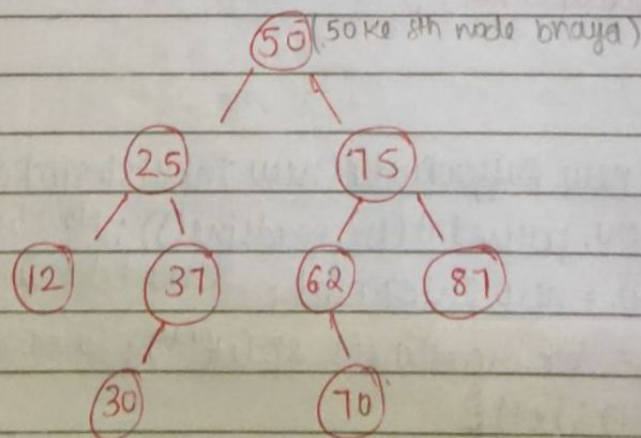 50 (50 ke sth node bhaya)
25 75
12 37 62 87
30 70